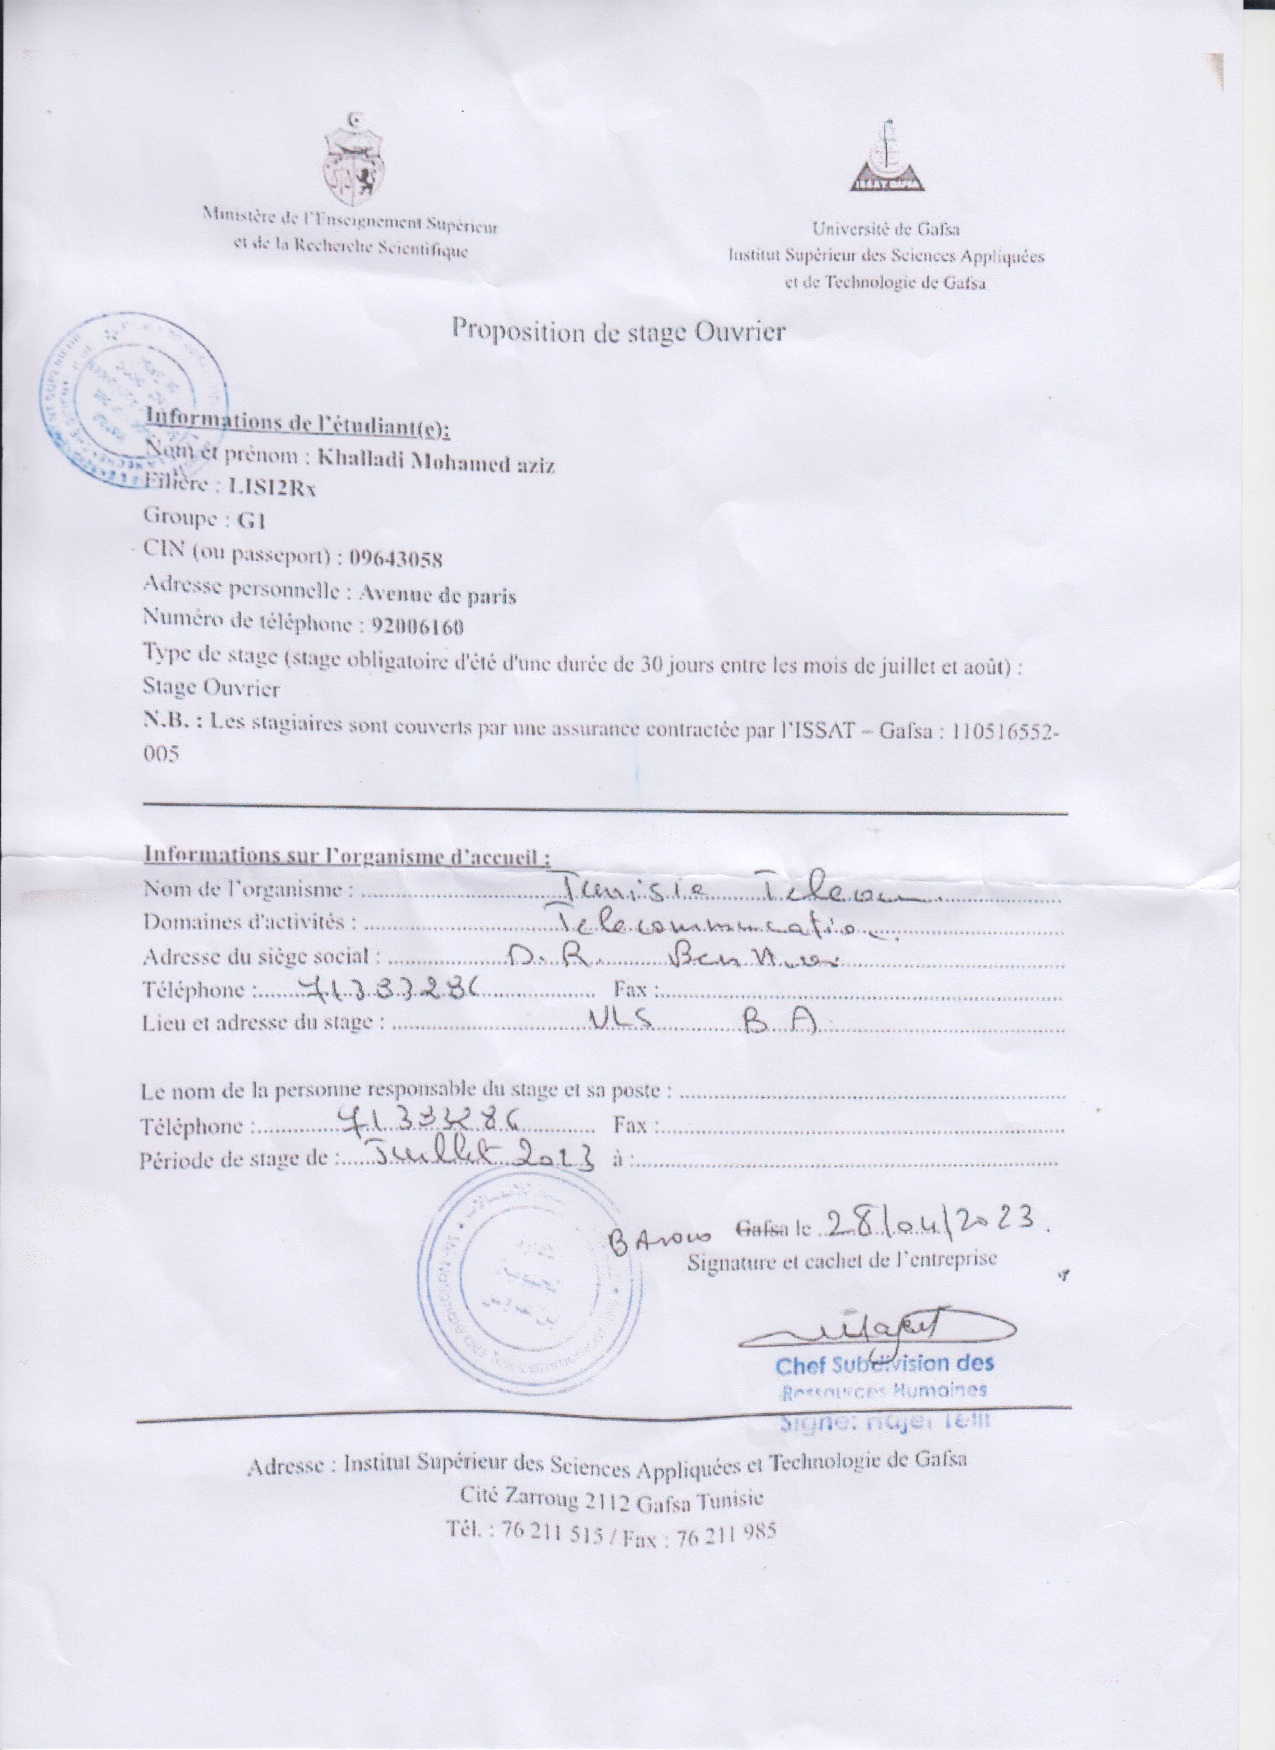 Ministère de l'Enseignement Supérieur
et de la Recherche Scientifique
ISSAT GAFSA
Université de Gafsa
Institut Supérieur des Sciences Appliquées
et de Technologie de Gafsa
Proposition de stage Ouvrier
Informations de l'étudiant(e):
Nom et prénom : Khalladi Mohamed aziz
Filière : LISI2Rx
Groupe : G1
CIN (ou passeport) : 09643058
Adresse personnelle : Avenue de paris
Numéro de téléphone : 92006160
Type de stage (stage obligatoire d'été d'une durée de 30 jours entre les mois de juillet et août) :
Stage Ouvrier
N.B. : Les stagiaires sont couverts par une assurance contractée par l'ISSAT – Gafsa : 110516552-
005
Informations sur l'organisme d'accueil :
Nom de l'organisme : Tunisie Telecom
Domaines d'activités : Telecommunication
Adresse du siège social : D.R. Ben Arous
Téléphone : 71393286 Fax :
Lieu et adresse du stage : B A
Le nom de la personne responsable du stage et sa poste :
Téléphone : 71393286 Fax :
Période de stage de : Juillet 2023 à :
B Arous Gafsa le 28/04/2023.
Signature et cachet de l'entreprise
Chef Subdivision des
Ressources Humaines
Signé:
Adresse : Institut Supérieur des Sciences Appliquées et Technologie de Gafsa
Cité Zarroug 2112 Gafsa Tunisie
Tél. : 76 211 515 / Fax : 76 211 985